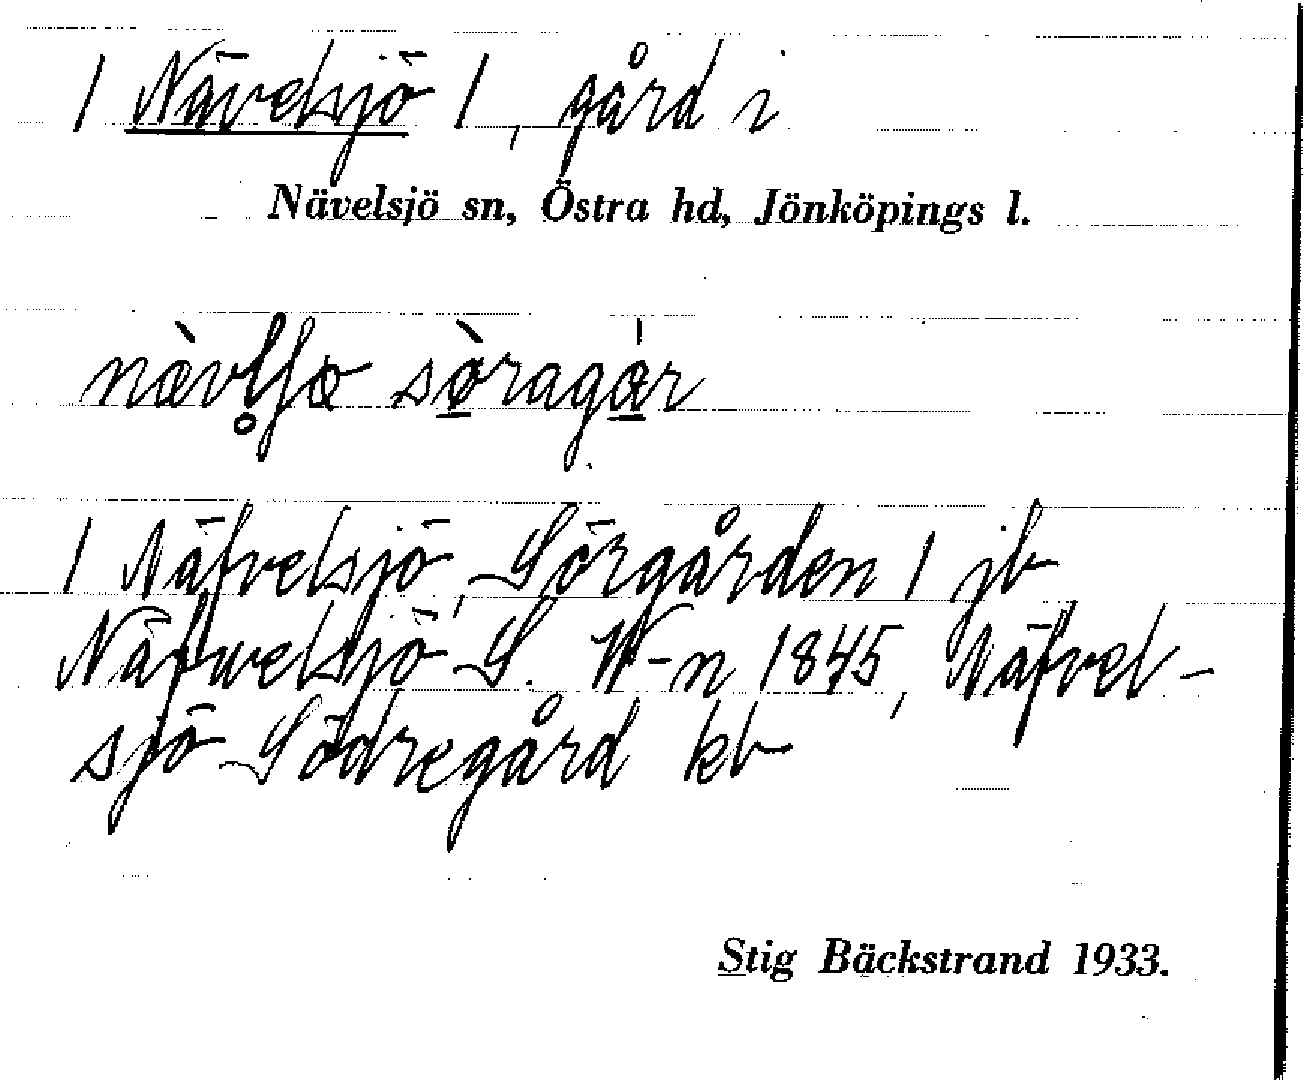 / Nävelsjö /, gård i
Nävelsjö sn, Östra hd, Jönköpings l.
næ̀vl̥ʃø sø̱̀raga̱̍r
/ Näfvelsjö, Sörgården / jb
Näfwelsjö S. W-n 1845, Näfvel-
sjö Södregård kb
Stig Bäckstrand 1933.